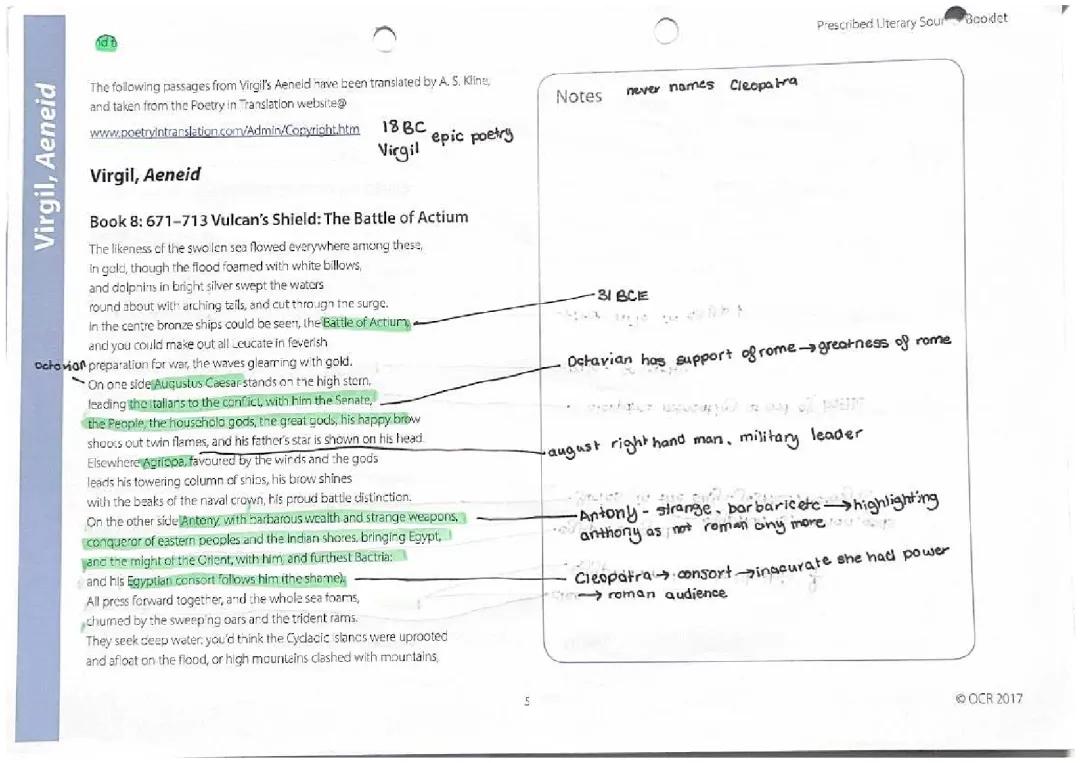 Prescribed Literary Sour Booklet
The following passages from Virgil's Aeneid have been translated by A. S. Kline,
and taken from the Poetry in Translation website@
www.poetryintranslation.com/Admin/Copyright.htm
18 BC epic poetry
Virgil
Virgil, Aeneid
Virgil, Aeneid
Book 8: 671–713 Vulcan's Shield: The Battle of Actium
The likeness of the swollen sea flowed everywhere among these,
in gold, though the flood foamed with white billows,
and dolphins in bright silver swept the waters
round about with arching tails, and cut through the surge.
In the centre bronze ships could be seen, the Battle of Actium,
and you could make out all Leucate in feverish
octavian
preparation for war, the waves gleaming with gold.
On one side Augustus Caesar stands on the high stern,
leading the Italians to the conflict, with him the Senate,
the People, the household gods, the great gods, his happy brow
shoots out twin flames, and his father's star is shown on his head.
Elsewhere Agrippa, favoured by the winds and the gods
leads his towering column of ships, his brow shines
with the beaks of the naval crown, his proud battle distinction.
On the other side Antony, with barbarous wealth and strange weapons,
conqueror of eastern peoples and the Indian shores, bringing Egypt,
and the might of the Orient, with him, and furthest Bactria:
and his Egyptian consort follows him (the shame).
All press forward together, and the whole sea foams,
churned by the sweeping oars and the trident rams.
They seek deep water: you'd think the Cycladic islands were uprooted
and afloat on the flood, or high mountains clashed with mountains,
Notes never names Cleopatra
31 BCE
Octavian has support of rome → greatness of rome
august right hand man, military leader
Antony - strange, barbaric etc → highlighting
anthony as not roman any more
Cleopatra → consort → inacurate she had power
→ roman audience
5
© OCR 2017